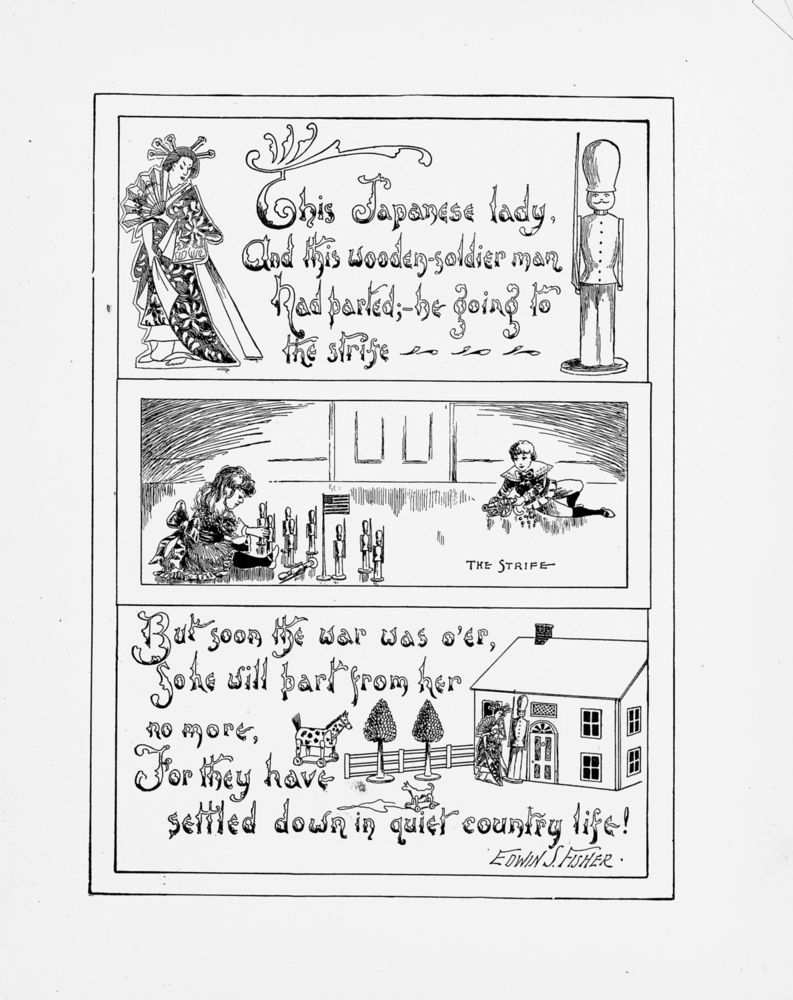 This Japanese lady,
And this wooden-soldier man
Had parted;-he going to
the strife
THE STRIFE
But soon the war was o'er,
So he will part from her
no more,
For they have
settled down in quiet country life!
EDWIN S. FISHER.